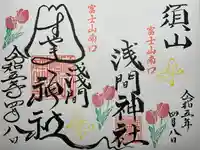 須山
富士山南口
浅間神社
令和五年
四月八日
富士山南口
須山
浅間
神社
令和五年四月八日